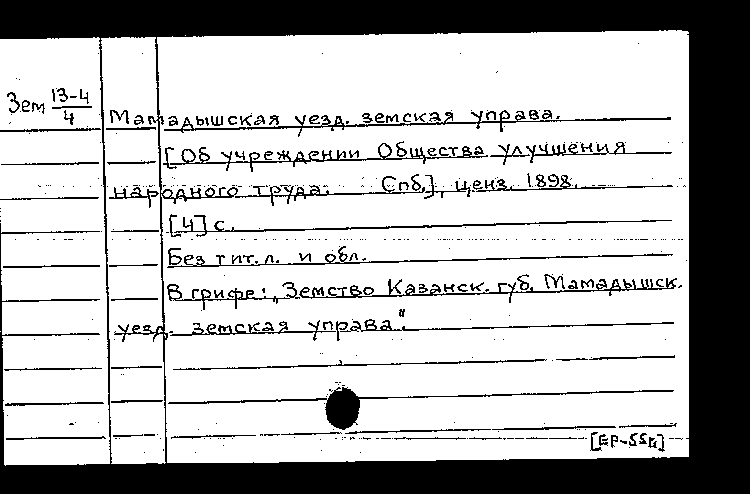 Зем 13-4/4
Мамадышская уезд. земская управа.
[Об учреждении Общества улучшения
народного труда. Спб.], ценз. 1898.
[4] с.
Без тит. л. и обл.
В грифе: „Земство Казанск. губ. Мамадышск.
уезд. земская управа".